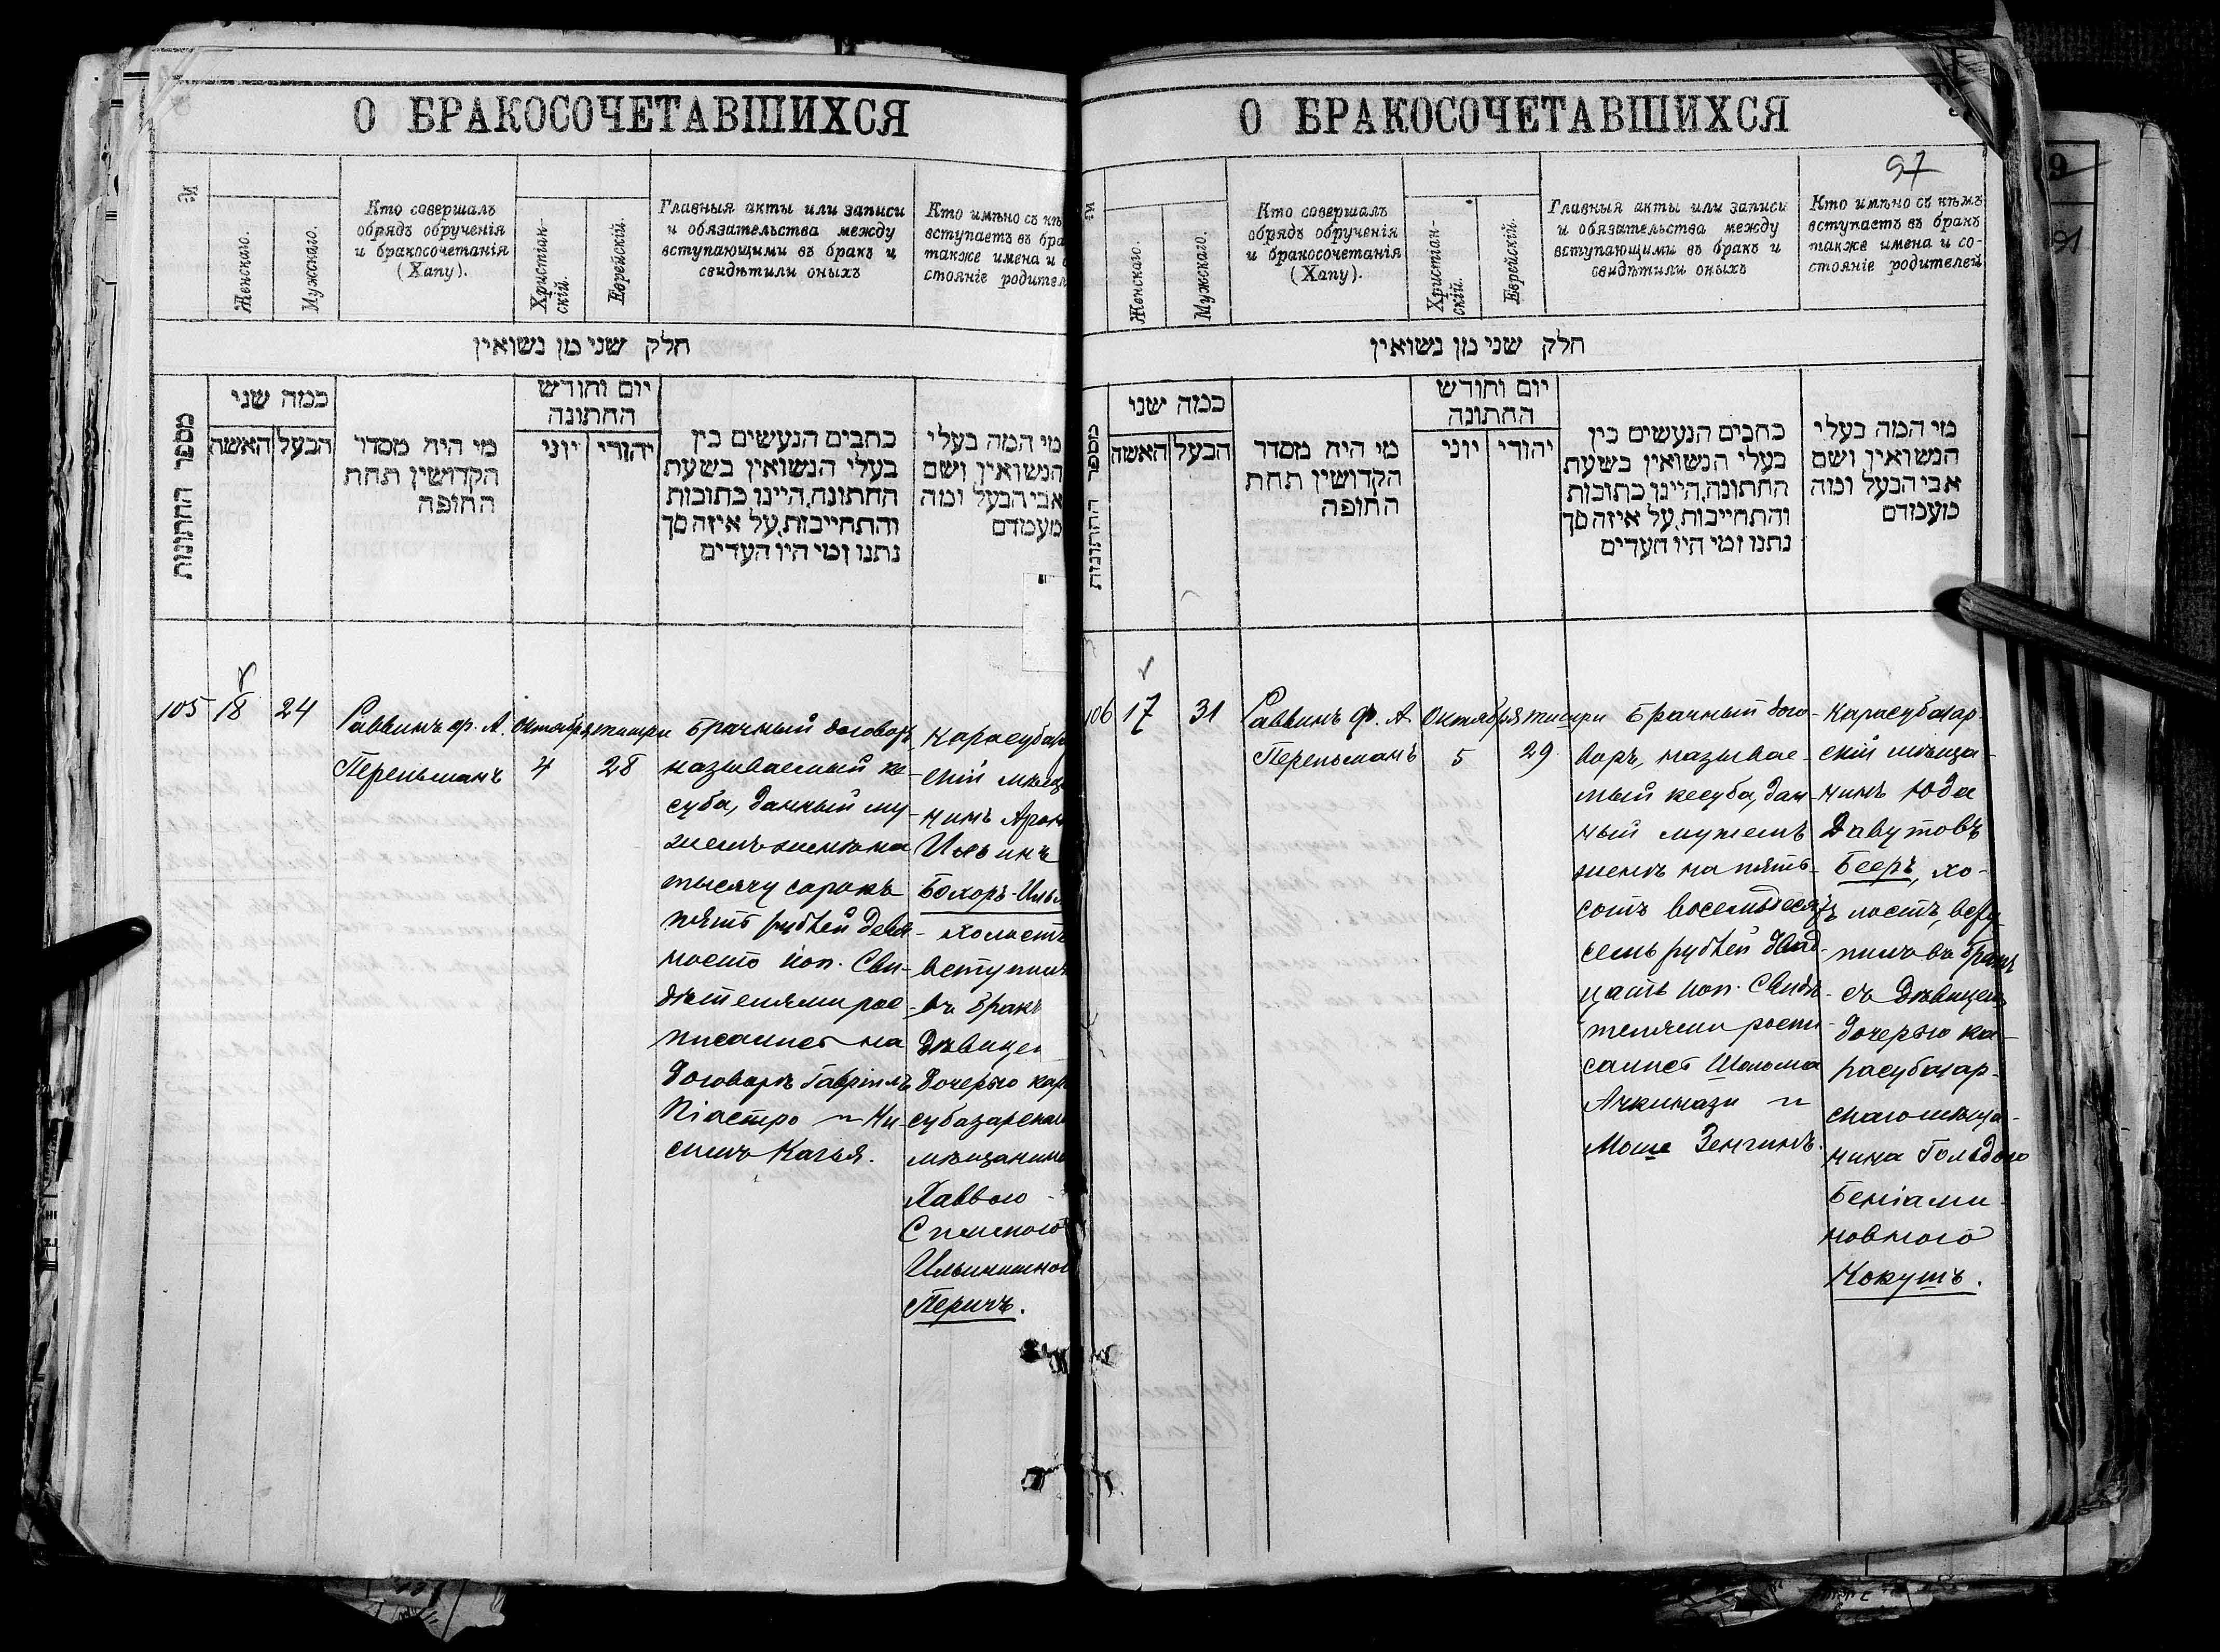 О БРАКОСОЧЕТАВШИХСЯ
№
Женскаго.
Мужскаго.
Кто совершалъ
обрядъ обрученія
и бракосочетанія
(Хапу).
Христіан-
скій.
Еврейскій.
Главныя акты или записи
и обязательства между
вступающими въ бракъ и
свидѣтили оныхъ
Кто имѣно съ кѣ
вступаетъ въ бра
также имена и с
стояніе родител
חלק שני מן נשואין
מספר החתונות
כמה שני
האשה
הבעל
מי היה מסדר
הקדושין תחת
החופה
יום וחודש
החתונה
יוני
יהודי
כתבים הנעשים בין
בעלי הנשואין בשעת
החתונה, היינו כתובות
והתחייבות, על איזה סך
נתנו ומי היו העדים
מי המה בעלי
הנשואין ושם
אבי הבעל ומה
מעמדם
105
18
24
Раввинъ ф. А.
Перельманъ
Октября
4
тишри
28
Брачный договоръ
называемый ке-
суба, данный му-
жемъ женѣ на
тысячу сорокъ
пять рублей девя-
носто коп. Сви-
дѣтелями рос-
писались на
договорѣ Гавріилъ
Піастро и Ни-
симъ Качья.
Карасубаз
скій мѣщ
нинъ Арон
Ильинъ
Бохоръ-Иль
холостъ
вступилъ
въ бракъ
дѣвицей
дочерью кар
субазарскаг
мѣщанина
Хаввою
Симхою
Ильинишною
Перичъ.
О БРАКОСОЧЕТАВШИХСЯ
97
№
Женскаго.
Мужскаго.
Кто совершалъ
обрядъ обрученія
и бракосочетанія
(Хапу).
Христіан-
скій.
Еврейскій.
Главныя акты или записи
и обязательства между
вступающими въ бракъ и
свидѣтили оныхъ
Кто имѣно съ кѣмъ
вступаетъ въ бракъ
также имена и со-
стояніе родителей
חלק שני מן נשואין
מספר החתונות
כמה שני
האשה
הבעל
מי היה מסדר
הקדושין תחת
החופה
יום וחודש
החתונה
יוני
יהודי
כתבים הנעשים בין
בעלי הנשואין בשעת
החתונה, היינו כתובות
והתחייבות, על איזה סך
נתנו ומי היו העדים
מי המה בעלי
הנשואין ושם
אבי הבעל ומה
מעמדם
106
17
31
Раввинъ ф. А
Перельманъ
Октября
5
тишри
29
Брачный дого-
воръ, называе-
мый кесуба, дан-
ный мужемъ
женѣ на пять-
сотъ восемьдесятъ
семь рублей двад-
цать коп. Свидѣ-
телями роспи-
сались Шолома
Ачкинази и
Моше Зенгинъ.
Карасубазар-
скій мѣща-
нинъ Юда
Давутовъ
Бееръ, хо-
лостъ, всту-
пилъ въ бракъ
съ дѣвицею
дочерью ка-
расубазар-
скаго мѣща-
нина Гольдою
Беніами-
новною
Кокушъ.